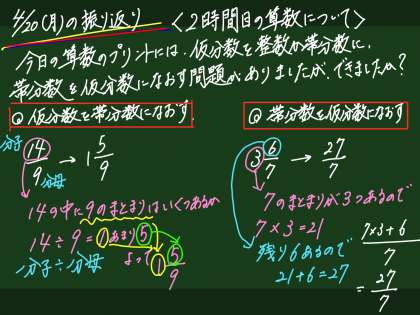 4/20(月)の振り返り 〈2時間目の算数について〉
今日の算数のプリントには、仮分数を整数か帯分数に、
帯分数を仮分数になおす問題がありましたが、できましたか?
◎仮分数を帯分数になおす
分子 14/9 → 1 5/9
分母
14の中に9のまとまりはいくつあるか
14÷9=1あまり5
分子÷分母 よって 1 5/9
◎帯分数を仮分数になおす
3 6/7 → 27/7
7のまとまりが3つあるので
7×3=21
残り6あるので
21+6=27
7×3+6/7
=27/7